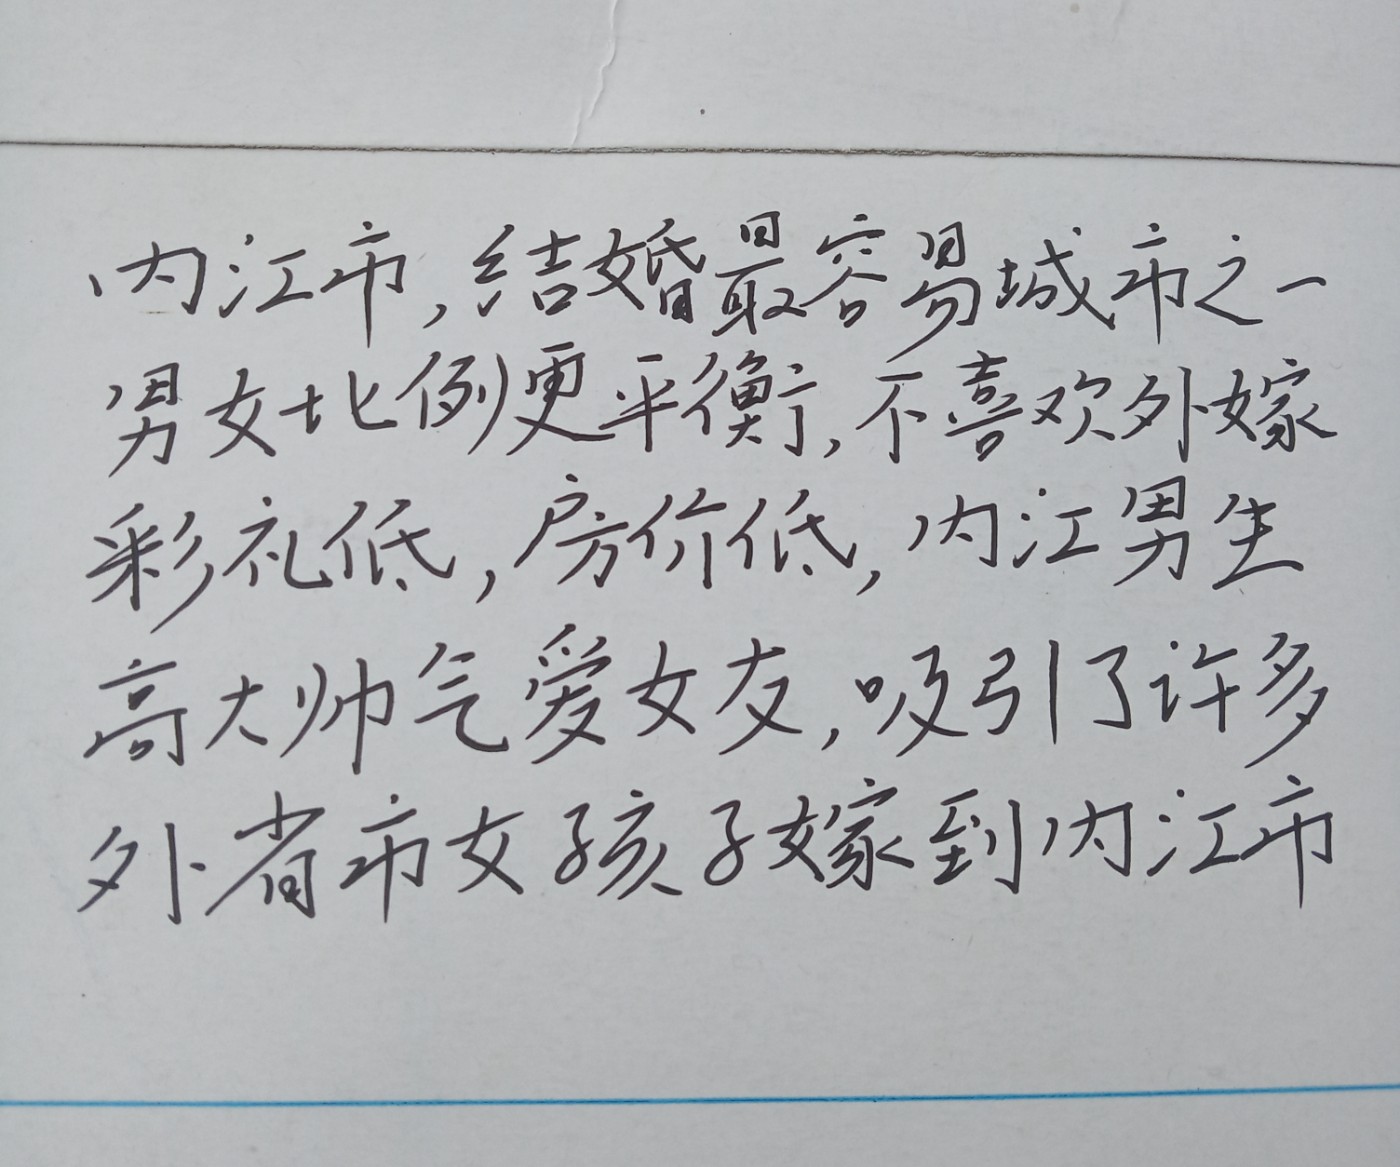 内江市,结婚最容易城市之一
男女比例更平衡,不喜欢外嫁
彩礼低,房价低,内江男生
高大帅气爱女友,吸引了许多
外省市女孩子嫁到内江市